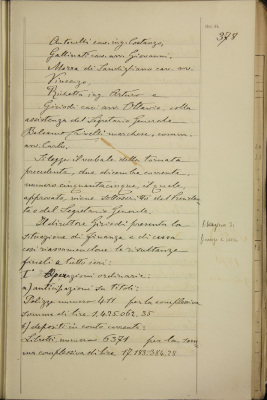 378
Anticelli cav. ing. Costanzo,
Gattinati cav. avv. Giovanni,
Mozza di cav. avv.
Vincenzo,
Rizzetto ing. Arturo e
cav. avv. Ottavio, colla
assistenza del Segretario Generale
Balsamo Crivelli marchese, comm.
avv. Carlo.
Si legge il verbale della tornata
precedente, due dicembre corrente,
numero cinquantacinque, il quale,
approvato, viene sottoscritto dal Presiden
te e dal Segretario Generale.
Il direttore presenta la
situazione di finanza e di cassa
così riassumendone le risultanze
finali a tutto ieri:
I Operazioni ordinarie:
a) anticipazioni su titoli:
Polizze numero 411 per la complessiva
somma di lire 1.435.062,35
b) depositi in conto corrente:
Libretti numero 6371 per la som
ma complessiva di lire 17.183.386,28
Situazione di
finanza e cassa